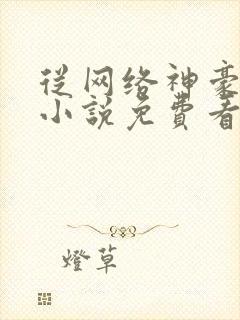 从网络神豪
小说免費看
燈草